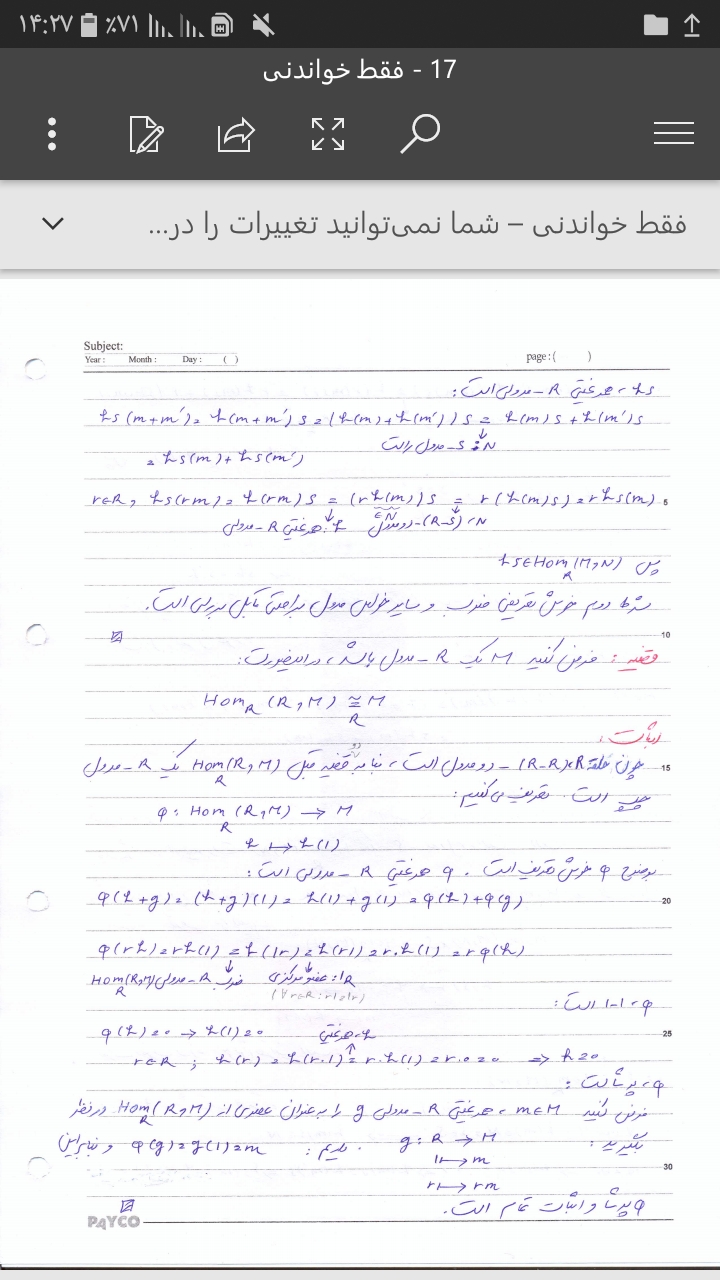 ۱۴:۲۷ ٪۷۱
17 - فقط خواندنی
فقط خواندنی – شما نمی‌توانید تغییرات را در...
Subject:
Year : Month : Day : ( ) page : ( )
hs ، همریختی R-مدولی است:
hs(m+m') = h(m+m')s = (h(m)+h(m'))s = h(m)s + h(m')s
N: S-مدول راست
= hs(m) + hs(m')
r∈R, hs(rm) = h(rm)s = (rh(m))s = r(h(m)s) = rhs(m) 5
N، (R-S)-دومدول ∈N h: همریختی R-مدولی
پس hs∈Hom_R(M,N)
شرط دوم خوش تعریفی ضرب و سایر خواص مدول به راحتی قابل بررسی است.
10
قضیه: فرض کنید M یک R-مدول باشد، در اینصورت:
Hom_R(R,M) ≅_R M
اثبات:
چون حلقه R، (R-R)-دو مدول است، بنا به دو قضیه قبل Hom_R(R,M) یک R-مدول 15
چپ است. تعریف می‌کنیم:
φ: Hom_R(R,M) → M
h ↦ h(1)
بوضوح φ خوش تعریف است. φ همریختی R-مدولی است:
φ(h+g) = (h+g)(1) = h(1)+g(1) = φ(h)+φ(g) 20
φ(rh) = rh(1) = h(1r) = h(r1) = r.h(1) = rφ(h)
1_R: عضو مرکزی ضرب R-مدولی Hom_R(R,M)
(∀r∈R: r1=1r)
φ، 1-1 است:
φ(h)=0 → h(1)=0 h، همریختی 25
r∈R ; h(r) = h(r.1) = r.h(1) = r.0 = 0 ⇒ h=0
φ، پوشاست:
فرض کنید m∈M، همریختی R-مدولی g را به عنوان عضوی از Hom_R(R,M) در نظر
بگیرید: g: R → M . داریم: φ(g)=g(1)=m و بنابراین
1 ↦ m
30
r ↦ rm
φ پوشا و اثبات تمام است.
PAYCO